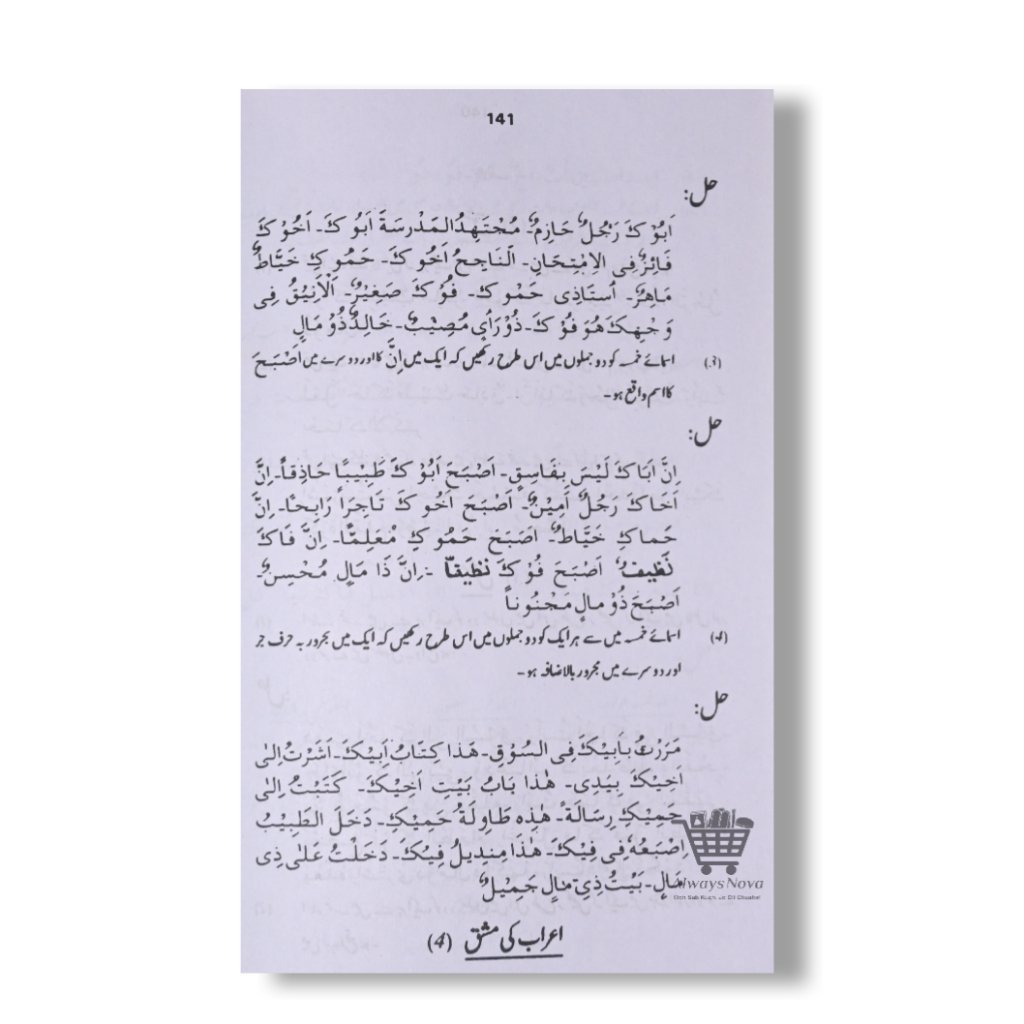 141
حل:
اَبُوْ كَ رَجُلٌ حَازِمٌ۔ مُجْتَهِدُ الْمَدْرسَةَ اَبُو كَ۔ اَخُوْ كَ
فَائِزٌ فِی الاِمْتِحَانِ۔ اَلنَاجِحُ اَخُو كَ۔ حَمُو كِ خَيَّاطٌ
مَاهِرٌ۔ اُستَاذِی حَمُو ك۔ فُوْ كَ صَغِيْرٌ۔ اَلْاَنِيْقُ فِی
وَجْهِكَ هُوَ فُوْ كَ۔ ذُوْ رَأیٍ مُصِيْبٌ۔ خَالِدٌ ذُوْ مَالٍ
(3) اسمائے خمسہ کو دو جملوں میں اس طرح رکھیں کہ ایک میں اِنَّ کا اور دوسرے میں اَصْبَحَ
کا اسم واقع ہو۔
حل:
اِنَّ اَبَا كَ لَيْسَ بِفَاسِقٍ۔ اَصْبَحَ اَبُوْ كَ طَبِيْبًا حَاذِقاً۔ اِنَّ
اَخَاكَ رَجُلٌ اَمِيْنٌ۔ اَصْبَحَ اَخُو كَ تَاجِرَاً رَابِحًا۔ اِنَّ
حَماكِ خَيَّاطٌ۔ اَصبَحَ حَمُو كِ مُعَلِمًّا۔ اِنَّ فَاكَ
نَظِيفٌ اَصْبَحَ فُوْ كَ نَظِيفاً ۔ اِنَّ ذَا مَالٍ مُحْسِنٌ۔
اَصْبَحَ ذُوْ مالٍ مَجْنُوناً
(4) اسمائے خمسہ میں سے ہر ایک کو دو جملوں میں اس طرح رکھیں کہ ایک میں مجرور بہ حرف جر
اور دوسرے میں مجرور بالاضافہ ہو۔
حل:
مَرَرْتُ بِاَبِيْكَ فِی السُوْقِ۔ هَذا كِتَابُ اَبِيْكَ۔ اَشَرْتُ اِلیٰ
اَخِيْكَ بِيَدِی۔ هٰذا بَابُ بَيْتِ اَخِيْكَ۔ كَتَبْتُ اِلیٰ
حَمِيْكِ رِسَالَةً۔ هٰذِهِ طَاوِلَةُ حَمِيْكِ۔ دَخَلَ الطَبِيْبُ
اِصْبَعُهٗ فِی فِيْكَ۔ هٰذَا مِنْدِيلُ فِيْكَ۔ دَخَلْتُ عَلیٰ ذِی
مَالٍ۔ بَيْتُ ذِیْ مَالٍ جَمِيْلٌ
اعراب کی مشق (4)
AlwaysNova